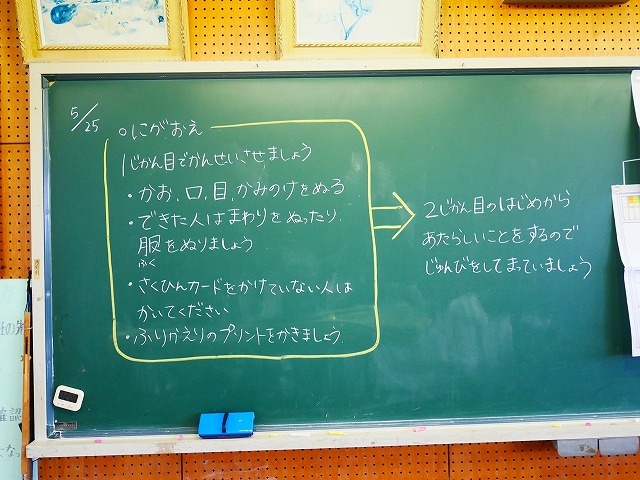 5/25
○にがおえ
1じかん目でかんせいさせましょう
・かお、口、目、かみのけをぬる
・できた人はまわりをぬったり、
服をぬりましょう
ふく
・さくひんカードをかけていない人は
かいてください
・ふりかえりのプリントをかきましょう
2じかん目のはじめから
あたらしいことをするので
じゅんびをしてまっていましょう
確認